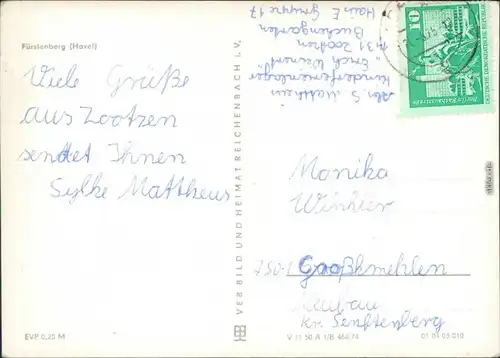 Fürstenberg (Havel)
Viele Grüße
aus Zootzen
sendet Ihnen
Sylke Mattheus
EVP 0,25 M
VEB BILD UND HEIMAT REICHENBACH i.V.
Abs. S. Mattheus
Kinderferienlager
"Erich Weinert"
1431 Zootzen
Buchengarten
Hain E Gruppe 17
10
DEUTSCHE DEMOKRATISCHE REPUBLIK
Monika
Winkler
Großkmehlen
Neubau
Kr. Senftenberg
V 11 50 A 1/B 464/74
01 01 05 010